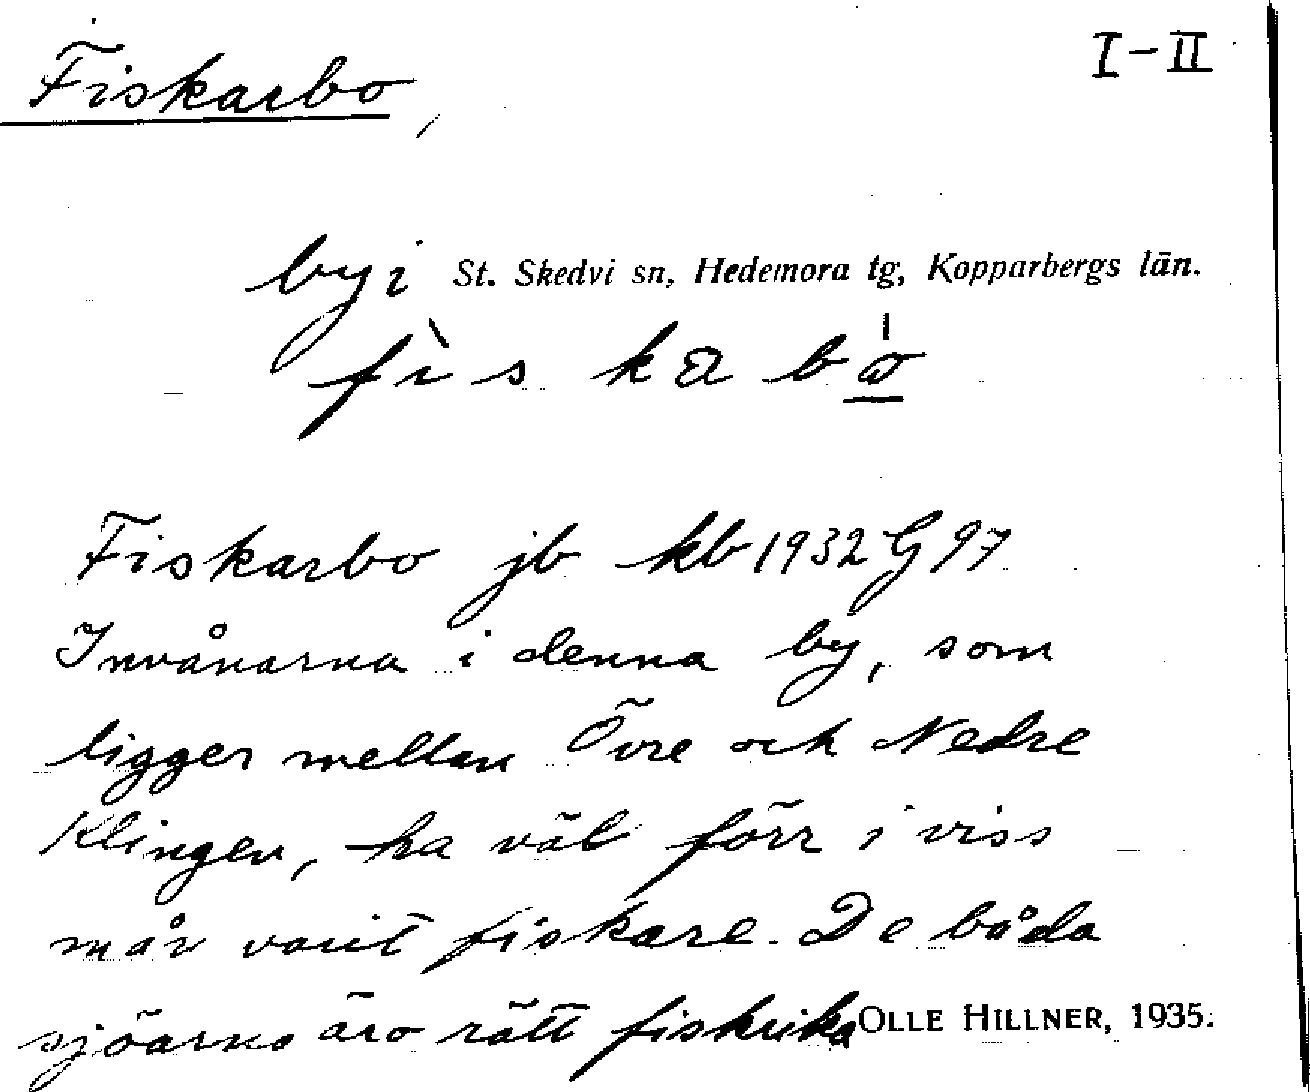 Fiskarbo,
I-II
by i St. Skedvi sn, Hedemora tg, Kopparbergs län.
fìskabo
Fiskarbo jb kb 1932 G 97
Invånarna i denna by, som
ligger mellan Övre och Nedre
Klingen, ha väl förr i viss
mån varit fiskare. De båda
sjöarna äro rätt fiskrika
OLLE HILLNER, 1935.